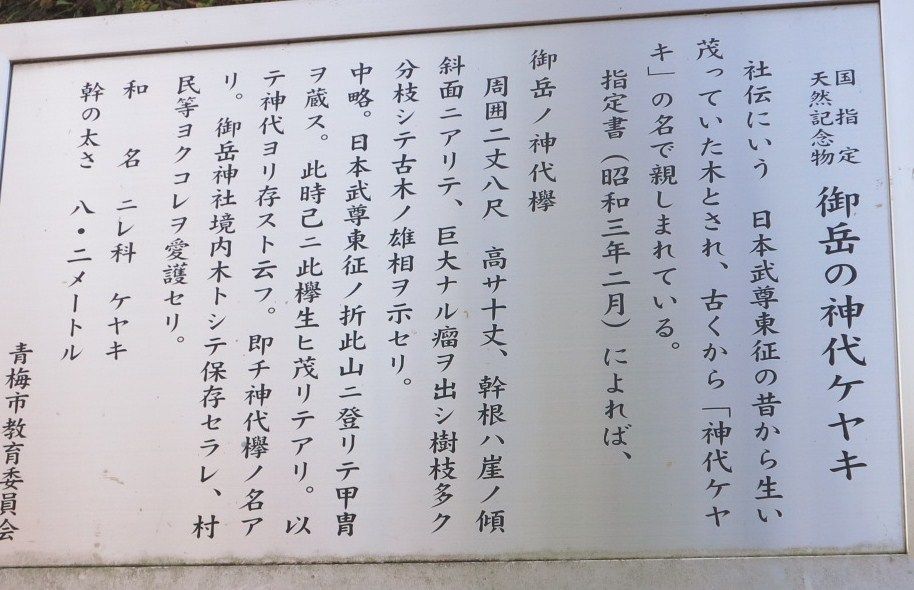 国指定
天然記念物
御岳の神代ケヤキ
社伝にいう 日本武尊東征の昔から生い
茂っていた木とされ、古くから「神代ケヤ
キ」の名で親しまれている。
指定書(昭和三年二月)によれば、
御岳ノ神代欅
周囲二丈八尺 高サ十丈、幹根ハ崖ノ傾
斜面ニアリテ、巨大ナル瘤ヲ出シ樹枝多ク
分枝シテ古木ノ雄相ヲ示セリ。
中略。日本武尊東征ノ折此山ニ登リテ甲冑
ヲ蔵ス。此時己ニ此欅生ヒ茂リテアリ。以
テ神代ヨリ存スト云フ。即チ神代欅ノ名ア
リ。御岳神社境内木トシテ保存セラレ、村
民等ヨクコレヲ愛護セリ。
和名 ニレ科 ケヤキ
幹の太さ 八・二メートル
青梅市教育委員会